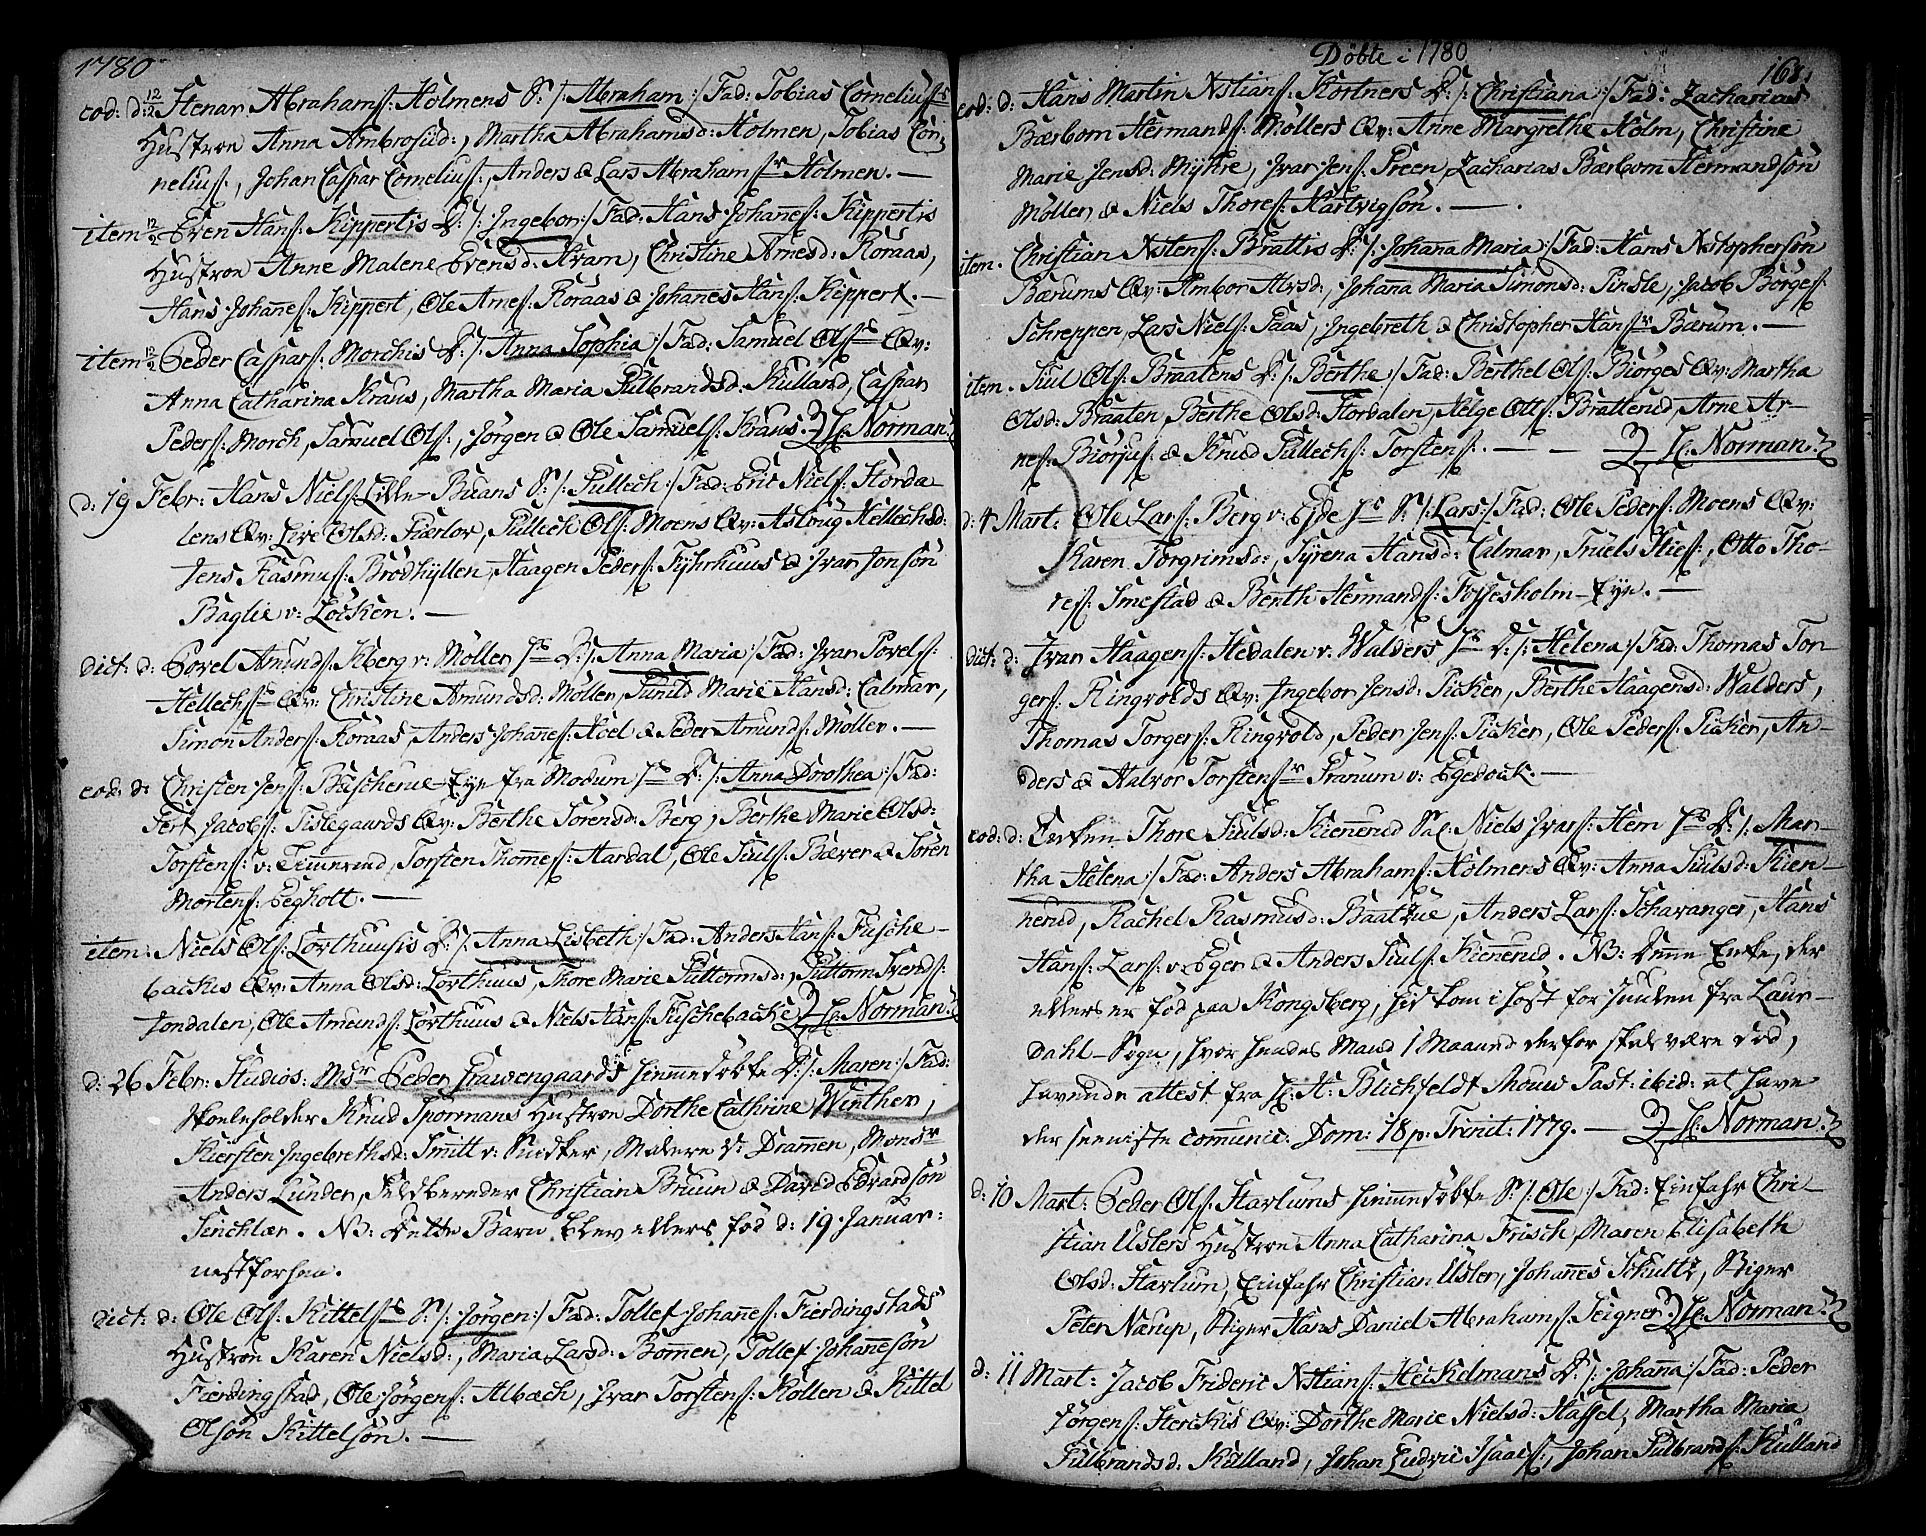 1780
eod: d: 12/2 Stenar Abrahamsſ: Holmens S: /: Abraham :/ Fad: Tobias Corneliusſ:
Hustroe Anna Ambrosiid:, Martha Abrahamsd: Holmen, Tobias Cor-
neliusſ:, Johan Caspar Corneliusſ:, Anders & Lars Abrahamsſr Holmen. —
item 12/2 Even Hansſ: Kippertis D: /: Ingebor :/ Fad: Hans Johanesſ: Kippertis
Hustroe Anne Malene Evensd: Aram, Christine Arnesd: Koraas,
Hans Johanesſ: Kippert, Ole Arnesſ: Koraas & Johanes Hansſ: Kippert. —
item 12/2 Peder Casparsſ: Morchis D: /: Anna Sophia :/ Fad: Samuel Olsſns Qv:
Anna Catharina Kraus, Martha Maria Gulbrandsd: Kulland, Caspar
Pedersſ: Morch, Samuel Olsſ:, Jørgen & Ole Samuelsſ: Kraus. H: Norman.
d: 19 Febr: Hans Nielsſ: Lille-Buans S: /: Gullech :/ Fad: Eric Nielsſ: Storda-
lens Qv: Live Olsd: Fiærlov, Gullech Olsſ: Moens Qv: Astoug Kellechsd:
Jens Rasmusſ: Brødhyllen, Haagen Pedersſ: Fyhrhuus & Ivar Jonsøn
Baglie v: Løcken. —
dict: d: Povel Amundsſ: Kberg v: Møller D: /: Anna Maria :/ Fad: Ivar Povelsſ:
Kellechsſns Qv: Christine Amundsd: Møller, Gunild Marie Hansd: Calmar,
Simon Andersſ: Koraas, Anders Johanesſ: Hoel & Peder Amundsſ: Møller. —
eod: d: Christen Jensſ: Buscherue-Eye fra Modum D: /: Anna Dorothea :/ Fad:
Gert Jacobsſ: Tislegaards Qv: Berthe Sørensd: Berg, Berthe Marie Olsd:
Torstensſ: v: Timrud, Torsten Thomesſ: Aardal, Ole Juulsſ: Bæver & Søren
Mortensſ: Egholt. —
item: Niels Olsſ: Lorthuusis D: /: Anna Lisbeth :/ Fad: Anders Hansſ: Fusche-
backis Qv: Anna Olsd: Lorthuus, Thore Marie Guttormsd:, Guttorm Svendsſ:
Jondalen, Ole Amundsſ: Lorthuus & Niels Hansſ: Fuschebacke. H: Norman.
d: 26 Febr: Studios: Msr Peder Frawengaards hiemmedøbte D: /: Maren :/ Fad:
Skoleholder Knud Spormans Hustroe Dorthe Cathrine Winther,
Kiersten Ingebrethsd: Smitt v: Snedker, Malere d: Drammen, Monsr
Anders Lunder, Guldbereder Christian Bruun & David Edvardsøn
Sinchlær. NB: Dette Barn blev ellers fød d: 19 Januar:
nestforhen.
dict: d: Ole Olsſ: Kittelsſns S: /: Jørgen :/ Fad: Tollef Johanesſ: Fierdingstads
Hustroe Karen Nielsd:, Maria Larsd: Bommen, Tollef Johannesøn
Fierdingstad, Ole Jørgensſ: Albæch, Ivar Torstensſ: Kollen & Kittel
Olsøn Kittelsøn. —
Døbte i 1780
168.
eod: d: Hans Martin Xstiansſ: Kortners D: /: Christiana :/ Fad: Zacharias
Bærbom Hermandsſ: Møllers Qv: Anne Margrethe Holm, Christine
Marie Jensd: Myhre, Ivar Jensſ: Preen, Zacharias Bærbom Hermandsøn
Møller & Niels Thoresſ: Hartvigsøn. —
item. Christian Xstensſ: Brattis D: /: Johana Maria :/ Fad: Hans Xstophersøn
Bærums Qv: Ambor Alvsd:, Johana Maria Simonsd: Pinsle, Jacob Børgesſ:
Schreppen, Lars Nielsſ: Saas, Ingebreth & Christopher Hansſr Bærum. —
item. Juul Olsſ: Braatens D: /: Berthe :/ Fad: Berthel Olsſ: Biørges Qv: Martha
Olsd: Braaten, Berthe Olsd: Stordalen, Helge Ottsſ: Bratterud, Arne Ar-
nesſ: Biørjus & Knud Gullechsſ: Torstensſ:. — H: Norman.
d: 4 Mart: Ole Larsſ: Berg v: Ejde S: /: Lars :/ Fad: Ole Pedersſ: Moens Qv:
Karen Torgrimsd:, Syrena Hansd: Calmar, Truels Hiesſ:, Otto Tho-
resſ: Smestad & Berth Hermandsſ: Fossesholm-Eye. —
dict: d: Ivar Haagensſ: Hedalen v: Walders D: /: Helena :/ Fad: Thomas Tor-
gersſ: Ringvolds Qv: Ingebor Jensd: Sicker, Berthe Haagensd: Walders,
Thomas Torgersſ: Ringvold, Peder Jensſ: Sicker, Ole Pedersſ: Sicker, An-
ders & Halvor Torstensſr Franum v: Egedouk. —
eod: d: Enken Thore Juulsd: Kiennerud Sal: Niels Ivarsſ: Hem D: /: Mar-
tha Helena :/ Fad: Anders Abrahamsſ: Holmens Qv: Anna Juulsd: Kien-
nerud, Rachel Rasmusd: Baatzue, Anders Larsſ: Schavanger, Hans
Hansſ: Larsſ: v: Eger & Anders Juulsſ: Kienerud. NB: Denne Enke, der
ellers er fød paa Kongsberg, hid kom i Høst for Juulen fra Laur-
Dahl-Sogn, hvor hendes Mand 1 Maaned derfor skal være død,
havende attest fra H: H: Blichfeldt Past: ibid: at have
der seeniste comunic: Dom: 18 p: Trinit: 1779. — H: Norman.
d: 10 Mart: Peder Olsſ: Starlums hiemmedøbte S: /: Ole :/ Fad: Einfahr Chri-
stian Uslers Hustroe Anna Catharina Frisch, Maren Elisabeth
Olsd: Starlum, Einfahr Christian Usler, Johannes Schultz, Stiger
Peter Nærup, Stiger Hans Daniel Abrahamsſ: Seigner. H: Norman.
d: 11 Mart: Jacob Frideric Xstiansſ: Heckelmans D: /: Johana :/ Fad: Peder
Jørgensſ: Sterckis Qv: Dorthe Marie Nielsd: Hassel, Martha Maria
Gulbrandsd: Kulland, Johan Ludvic Isaacsſ:, Johan Gulbrandsſ: Kulland